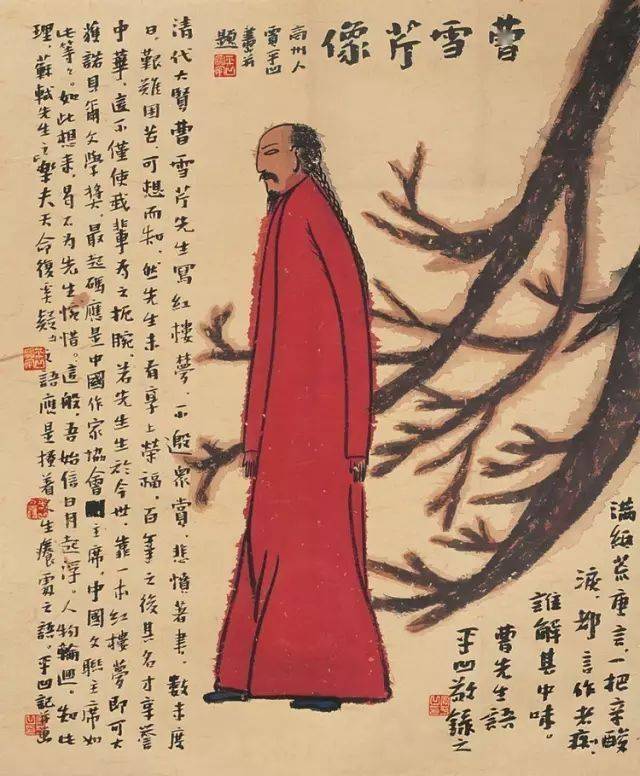 曹雪芹像
商州人
賈平凹
畫并
題
清代大賢曹雪芹先生寫紅樓夢，不邀眾賞，悲憤著書，數年度
日，艱難困苦，可想而知，然先生未有享上榮福，百年之後其名才享譽
中華，這不僅使我輩為之扼腕，若先生生於今世，靠一本紅樓夢即可大
獲諾貝爾文學獎，最起碼應是中國作家協會主席，中國文聯主席如
此等々。如此想來，曷不為先生惋惜。這般，吾始信日月起浮。人物輪迴，知此
理，蘇軾先生之樂夫天命復奚疑語應是撞着人生癢處之語。平凹記并畫
滿紙荒唐言，一把辛酸
淚，都言作者癡，
誰解其中味。
曹先生語
平凹敬錄之